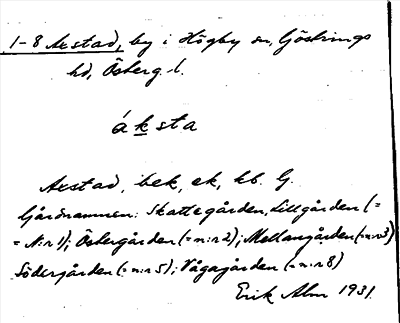 1-8 Axstad, by i Högby sn, Göstrings
hd, Österg. l.
áksta
Axstad, bek, ek, hb. G.
Gårdnamnen: Skattegården, Lillgården (=
= N:r 1); Östergården (= n:r 2); Mellangården (= n:r 3)
Södergården (= n:r 5); Vågagården (= n:r 8)
Erik Alm 1931.